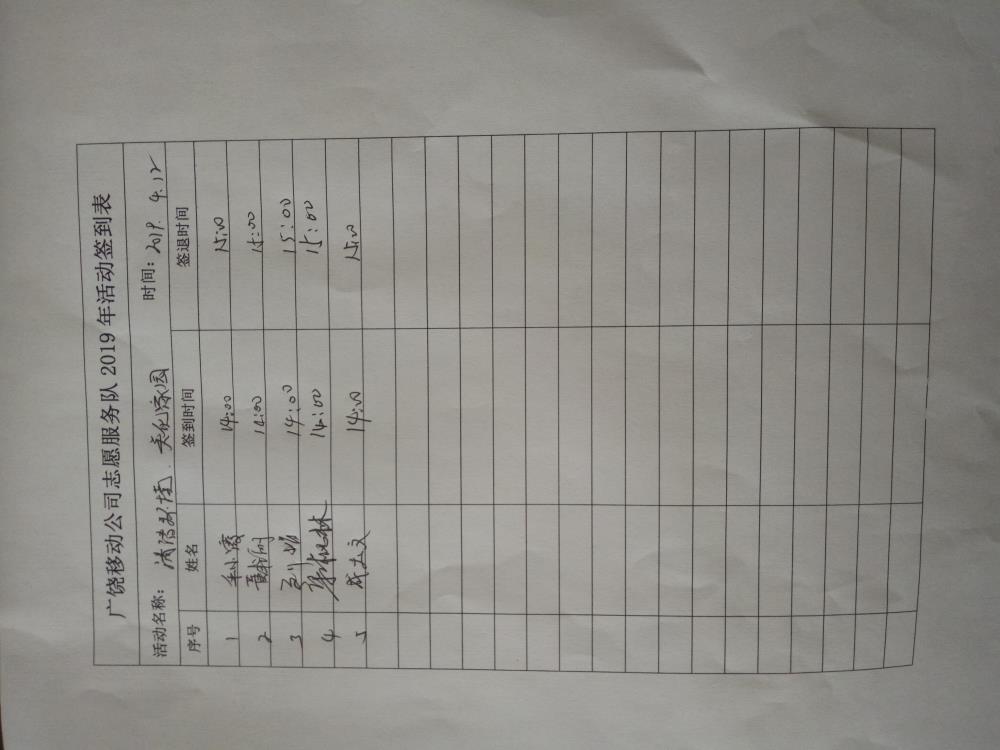 广饶移动公司志愿服务队2019年活动签到表
活动名称: 清洁环境.美化家园 时间: 2019.4.12
序号 姓名 签到时间 签退时间
1 14:00 15:00
2 14:00 15:00
3 14:00 15:00
4 14:00 15:00
5 14:00 15:00